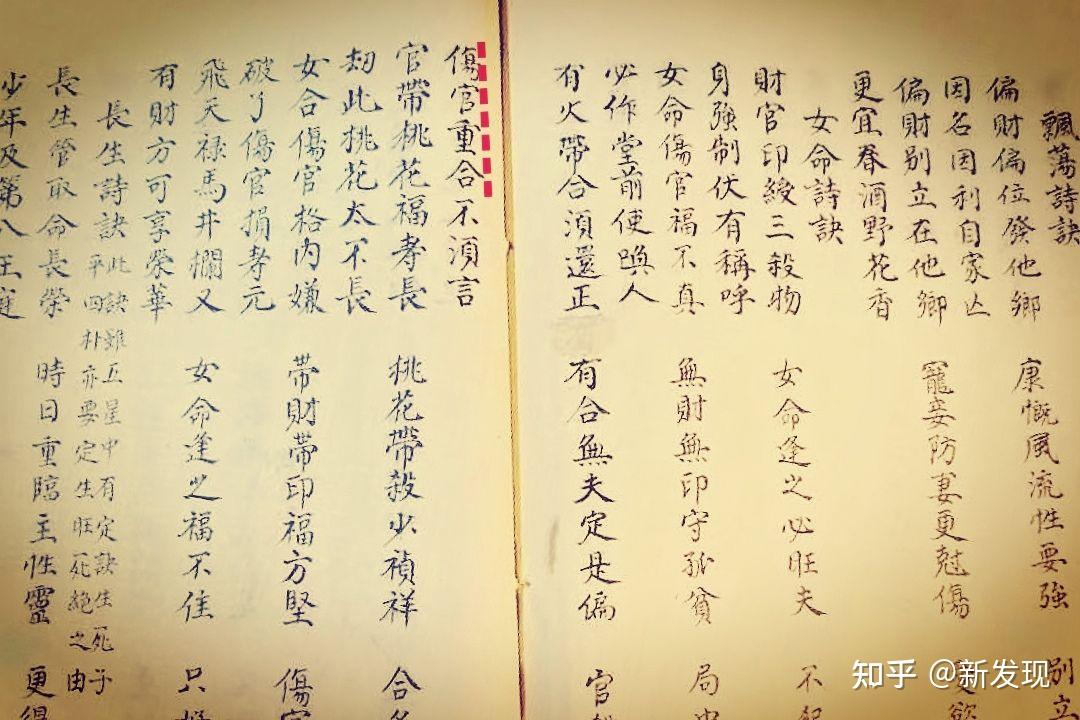 飄蕩詩訣
偏財偏位發他鄉 康慨風流性要強 別立
因名因利自家亡
偏財別立在他鄉 寵妾防妻更尅傷
更宜春酒野花香
女命詩訣
財官印綬三殺物 女命逢之必旺夫 不
身強制伏有稱呼
女命傷官福不真 無財無印守孤貧 局
必作堂前使喚人
有火帶合須還正 有合無夫定是偏 官
傷官重合不須言
官帶桃花福壽長 桃花帶殺少禎祥 合
劫此桃花太不長
女合傷官格內嫌 帶財帶印福方堅 傷官
破了傷官損壽元
飛天祿馬井欄叉 女命逢之福不佳 只
有財方可享榮華
長生詩訣 此訣雖五星中有定訣生死
平四朴亦要定生旺死絕之由
長生管取命長榮 時日重臨主性靈 更得
少年及第入王庭
知乎 @新发现